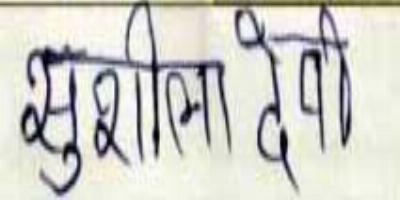 सुशीला देवी